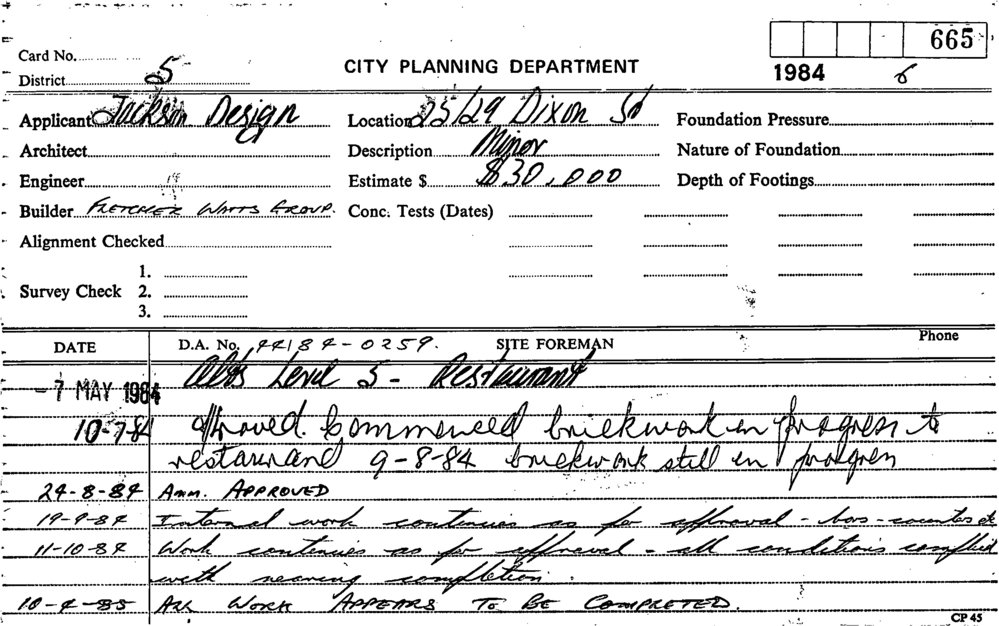 Card No.
665
District 5
CITY PLANNING DEPARTMENT
1984 6
Applicant Jackson Design
Location 25/29 Dixon St
Foundation Pressure
Architect
Description Minor
Nature of Foundation
Engineer
Estimate $ $30,000
Depth of Footings
Builder FLETCHER WATTS GROUP.
Conc. Tests (Dates)
Alignment Checked
1.
Survey Check 2.
3.
DATE
D.A. No. 44184-0259.
SITE FOREMAN
Phone
-7 MAY 1984 Level 5 - Restaurant
10-7-84 Approved. Commenced brickwork in progress to
restaurand 9-8-84 brickwork still in progress
24-8-84 Amm. APPROVED
19-9-84 Internal work continues as per approval - bars - counters etc
11-10-84 Work continues as per approval - all conditions complied
with nearing completion.
10-4-85 ALL WORK APPEARS TO BE COMPLETED.
CP 45